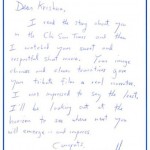 Dear Kershaw,
I read the story about you
in the Sun Times and then
I watched your sweet and
respectful short movie. Your image
choices and clever transitions give
your tribute film a real
I was impressed to say the least.
I'll be looking out at the
horizon to see where next you
will emerge - and impress.
Congrats,